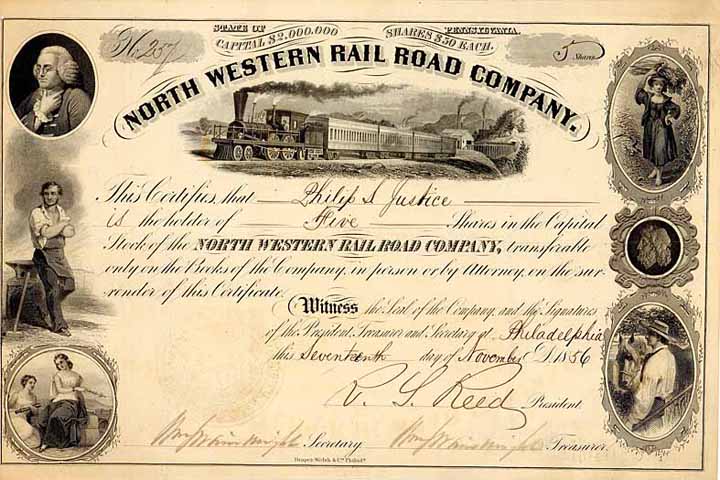 No. 257
STATE OF PENNSYLVANIA.
CAPITAL $2,000,000 SHARES $50 EACH.
5 Shares
NORTH WESTERN RAIL ROAD COMPANY.
This Certifies, that Philip S Justice
is the holder of Five Shares in the Capital
Stock of the NORTH WESTERN RAIL ROAD COMPANY, transferable
only on the Books of the Company, in person or by Attorney, on the sur-
render of this Certificate.
Witness the Seal of the Company, and the Signatures
of the President, Treasurer and Secretary at Philadelphia
this Seventeenth day of November A.D. 1856
R. S. Reed President.
Wm Wainwright Secretary Wm Wainwright Treasurer.
Draper, Welsh & Co. Philada.